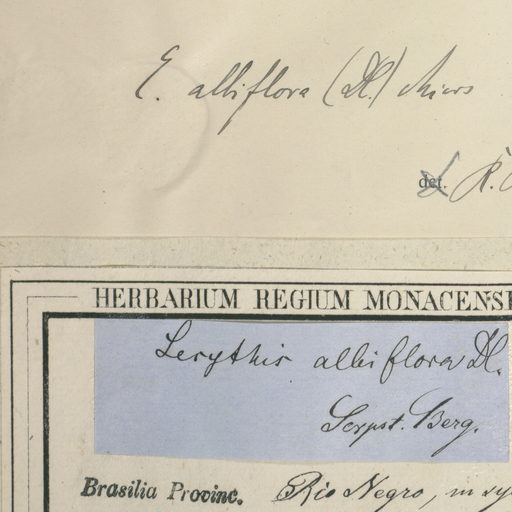 E. albiflora (DC.) Miers
det. R.
HERBARIUM REGIUM MONACENSE
Lecythis albiflora DC.
Scrpst. Berg.
Brasilia Provinc. Rio Negro, in sy